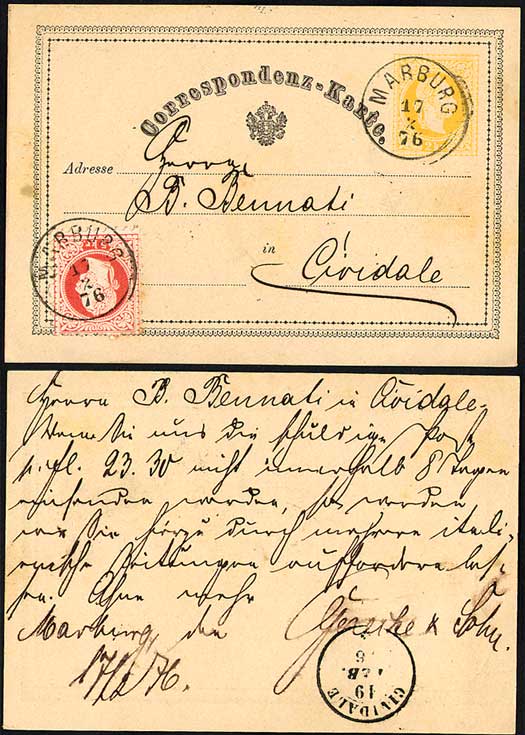 Correspondenz-Karte.
MARBURG
17
2
76
Adresse
Herrn
B. Bennati
in
Cividale
MARBURG
17
2
76
Herrn B. Bennati in Cividale.
Wenn Sie uns die schuldige Post
p. fl. 23.30 nicht innerhalb 8 Tagen
einsenden werden, so werden
wir Sie hierzu durch mehrere itali-
enische Zeitungen auffordern las-
sen. Ohne mehr
& Sohn.
Marburg, den
17/2 76.
CIVIDALE
19
FEB.